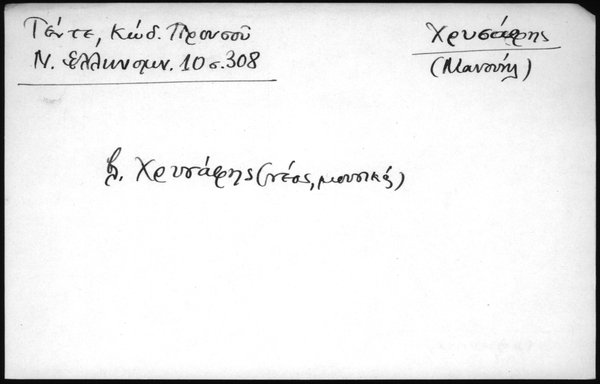 Γέντε, Κώδ. Προυσοῦ
Ν. Ἑλληνομν. 10 σ. 308
Χρυσάφης
(Μανουήλ)
βλ. Χρυσάφης (νέος, μουσικός)